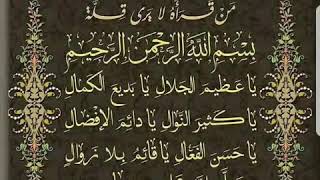 مَنْ قَرَأَهُ لَا يَرَى قِلَّةً
بِسْمِ اللَّهِ الرَّحْمَنِ الرَّحِيمِ
يَا عَظِيمَ الْجَلَالِ يَا بَدِيعَ الْكَمَالِ
يَا كَثِيرَ النَّوَالِ يَا دَائِمَ الْإِفْضَالِ
يَا حَسَنَ الْفَعَالِ يَا قَائِمُ بِلَا زَوَالٍ